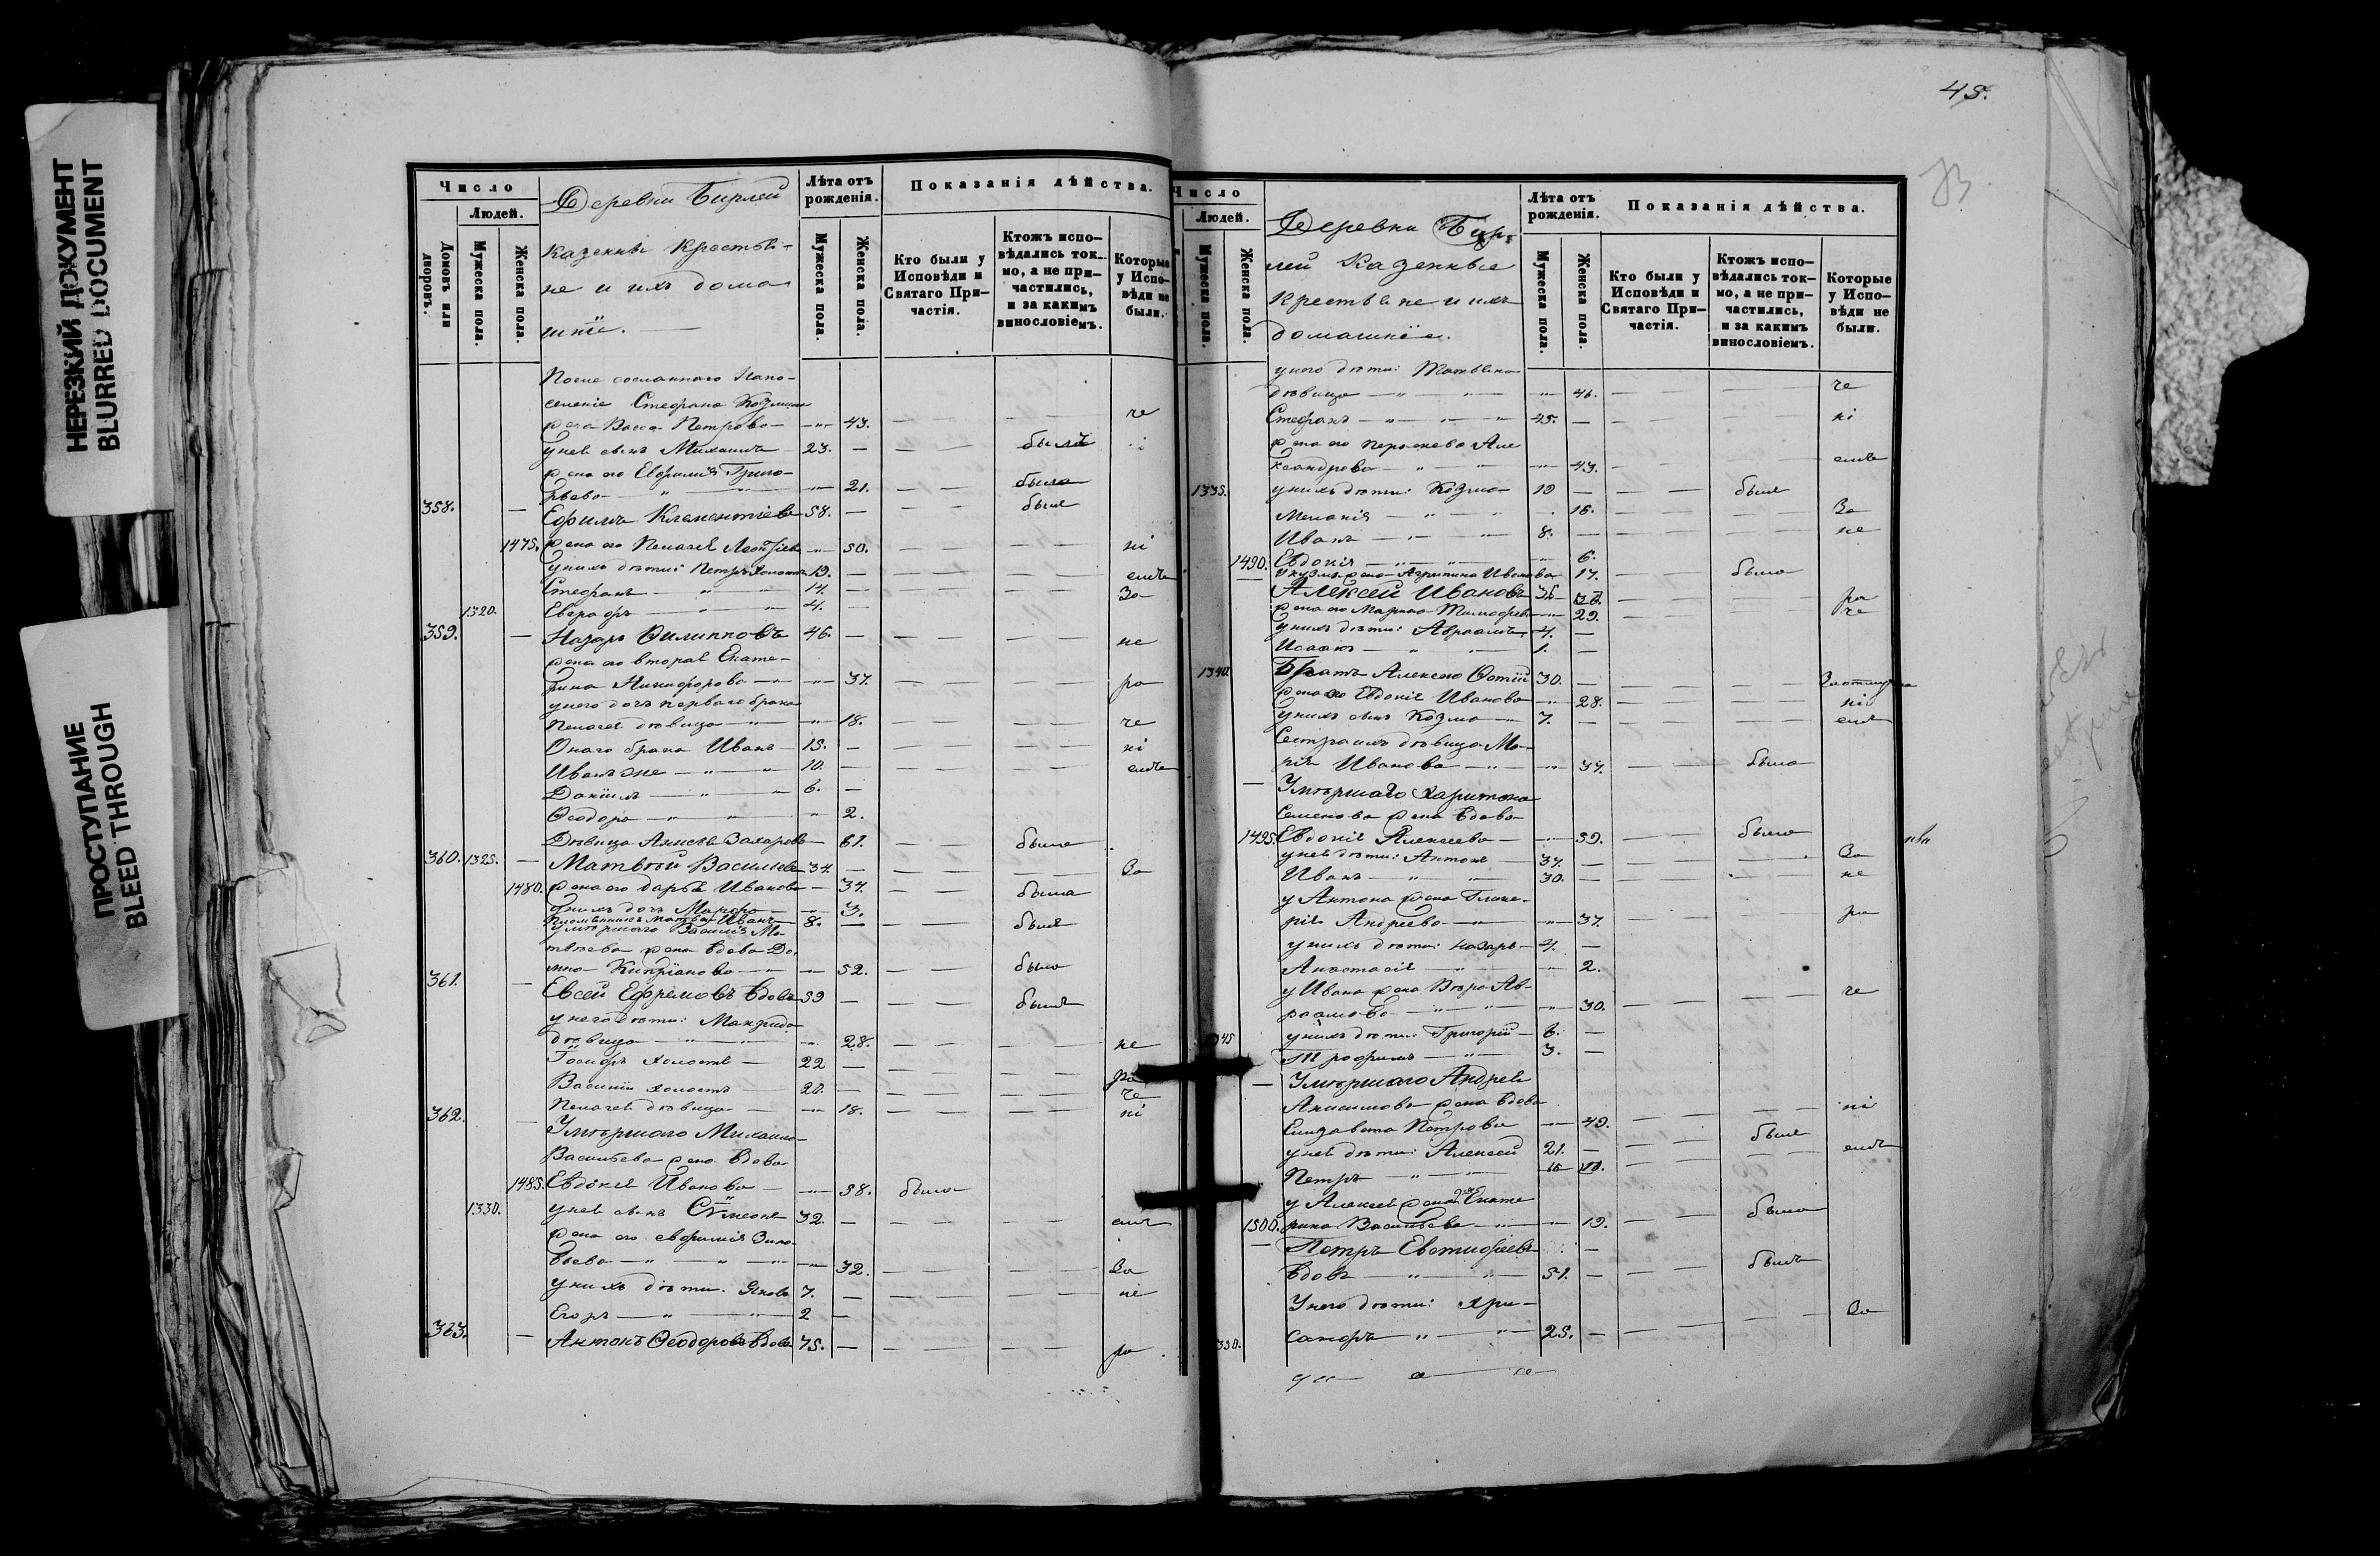 НЕРЕЗКИЙ ДОКУМЕНТ
BLURRED DOCUMENT
ПРОСТУПАНИЕ
BLEED THROUGH
Число
Людей.
Домовъ или дворовъ.
Мужеска пола.
Женска пола.
Деревни Бирлей
казенные крестья-
не и ихъ дома
шнiе.
Лѣта отъ рожденiя.
Мужеска пола.
Женска пола.
Показанiя дѣйства.
Кто были у Исповѣди и Святаго При-частiя.
Ктожъ испо-вѣдались ток-мо, а не при-частились, и за какимъ винословiемъ.
Которые у Испо-вѣди не были.
После сосланнаго Напо-
селенiе Стефана Козмина
жена Васса Петрова 43. не
у нея сынъ Михаилъ 23. былъ
жена его Евфимiя Григо-
рьева 21. была
358. Ефимъ Клементiевъ 58. былъ
1475. жена его Пелагея Леонтiева 50. нi
у нихъ дѣти: Петръ холостъ 19.
Стефанъ 14. За
1320. Евграфъ 4.
359. Назаръ Филипповъ 46. не
жена его вторая Екате-
рина Никифорова 37. ра
у него дочь перваго брака
Пелагея дѣвица 18. че
Онаго брака Иванъ 15. нi
Иванъ же 10.
Данiилъ 6.
Феодора 2.
Дѣвица Анисья Захарова 61. была
360. 1325. Матвѣй Васильевъ 34. За
1480. жена его Дарья Иванова 34. была
у нихъ дочь Марфа 3.
Племянникъ Матвея Иванъ 8. былъ
Умѣршаго Василiя Ма-
твѣева жена вдова До-
мна Кипрiанова 52. была
361. Евсей Ефремовъ вдовъ 59 былъ
у него дѣти: Макрида
дѣвица 28. не
Iосифъ холостъ 22 ра
Василiй холостъ 20. че
Пелагея дѣвица 18. нi
362. Умѣршаго Михаила
Васильева жена вдова
1485. Евдокiя Иванова 58. была
1330. у нея сынъ Сѵмеонъ 32.
жена его Евфимiя Зино-
вьева 32. За
у нихъ дѣти: Яковъ 7. не
Егоръ 2
363. Антонъ Феодоровъ вдовъ 75. ра
45.
Число
Людей.
Мужеска пола.
Женска пола.
Деревни Бир-
лей Казенные
крестьяне и ихъ
домашнiе.
Лѣта отъ рожденiя.
Мужеска пола.
Женска пола.
Показанiя дѣйства.
Кто были у Исповѣди и Святаго При-частiя.
Ктожъ испо-вѣдались ток-мо, а не при-частились, и за какимъ винословiемъ.
Которые у Испо-вѣди не были.
у него дѣти: Матвена
дѣвица 46. че
Стефанъ 45. нi
жена его Парасковья Але
ксандрова 43.
1335. у нихъ дѣти: Козма 19 былъ
Меланiя 16. За
Иванъ 8. не
1490. Евдокiя 6.
у Кузмы жена Агрипина Иванова 17. была
Алексей Ивановъ 36 ра
жена его Марина Тимофеева 29. че
у нихъ дѣти: Авраамъ 4.
Исаакъ 1.
1340. Братъ Алексею Фотiй 30.
жена его Евдокiя Иванова 28. нi
у нихъ сынъ Козма 7.
Сестра ихъ дѣвица Ма-
рiя Иванова 37. была
Умѣршаго Харитона
Семенова жена вдова
1495. Евдокiя Алексеева 59. была
у нея дѣти: Антонъ 37. За
Иванъ 30. не
у Антона жена Глике-
рiя Андреева 37. ра
у нихъ дѣти: Назаръ 4.
Анастасiя 2.
у Ивана жена Вѣра Ав-
раамова 30. че
1345 у нихъ дѣти: Григорiй 6.
Трофимъ 3.
Умѣршаго Андрея
Анисимова жена вдова
Елизавета Петрова 49. нi
у нея дѣти: Алексей 21. былъ
Петръ 18
у Алексея жена Екате
1500. рина Васильева 19. была
Петръ Евстифеевъ
вдовъ 51. былъ
У него дѣти: Хри-
350. санфъ 25. За